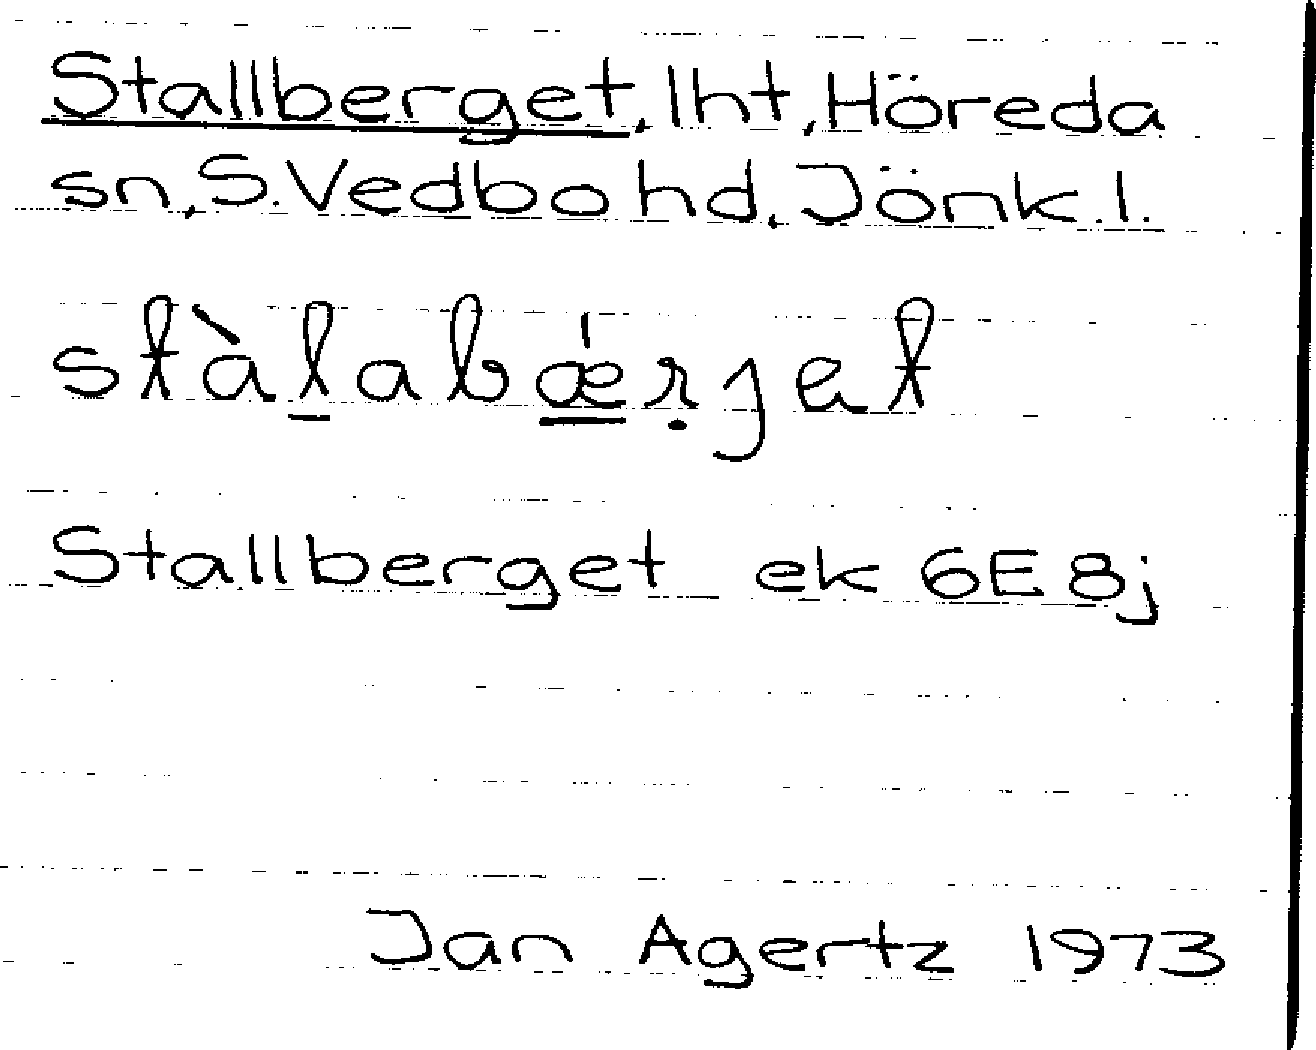 Stallberget, lht, Höreda
sn, S. Vedbo hd, Jönk. l.
stàl̲abǽ̳rjet
Stallberget ek 6E 8j
Jan Agertz 1973